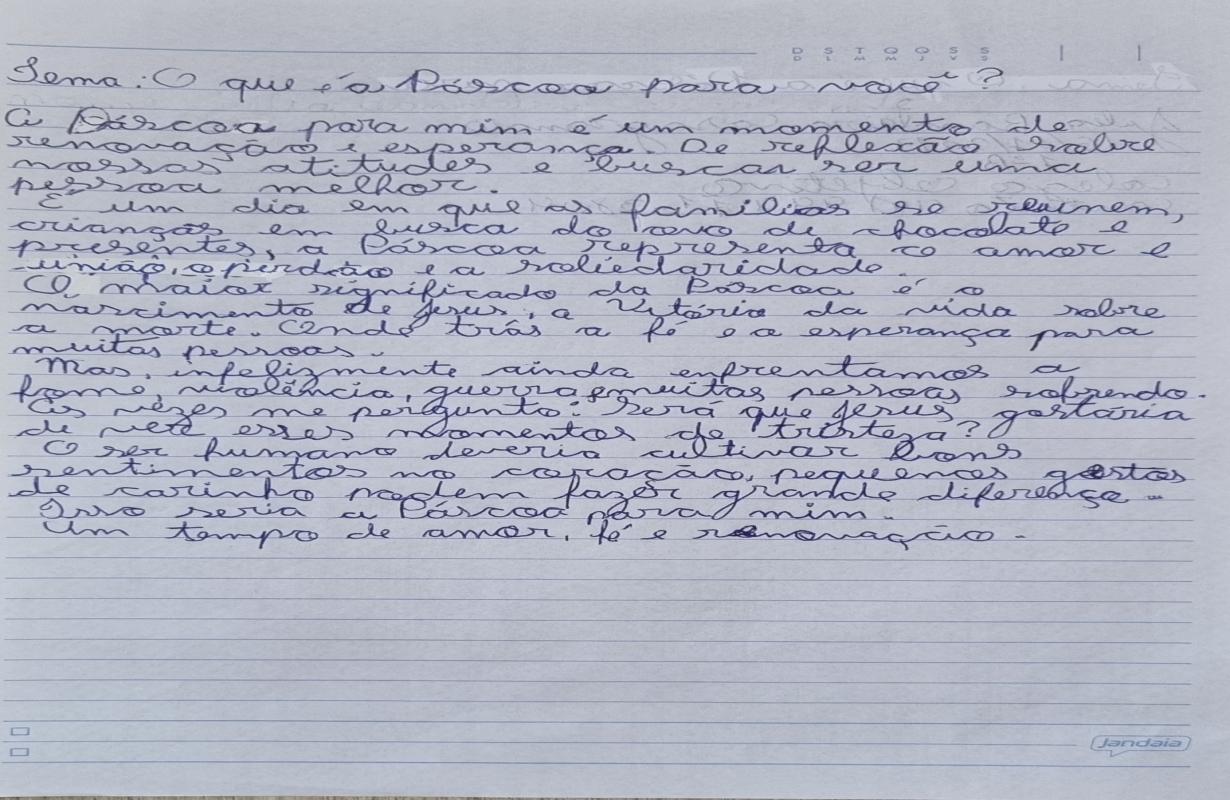 D S T Q Q S S
D L M M J V S
Tema: O que é a Páscoa para você?
A Páscoa para mim é um momento de
renovação e esperança. De reflexão sobre
nossas atitudes e buscar ser uma
pessoa melhor.
É um dia em que as famílias se reunem,
crianças em busca do ovo de chocolate e
presentes, a Páscoa representa o amor e
união, o perdão e a soliedaridade.
O maior significado da Páscoa é o
narcimento de Jesus, a Vitória da vida sobre
a morte. Onde trás a fé e a esperança para
muitas pessoas.
Mas, infelizmente ainda enfrentamos a
fome, violência, guerra e muitas pessoas sofrendo.
Às vezes me pergunto: Será que Jesus gostária
de vete esses momentos de tristeza?
O ser humano deveria cultivar bons
sentimentos no coração, pequenos gestos
de carinho podem fazer grande diferença..
Isso seria a Páscoa para mim.
Um tempo de amor, fé e renovação.
Jandaia